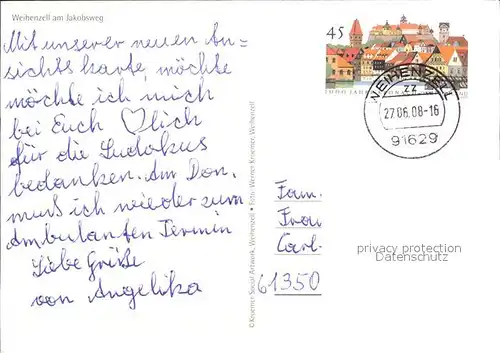 Weihenzell am Jakobsweg
Mit unserer neuen An=
sichtskarte, möchte
möchte ich mich
bei Euch ♡lich
für die Sudokus
bedanken. Am Don.
muß ich wieder zum
Ambulanten Termin
Liebe Grüße
von Angelika
© Keuerner Social Artwork, Weihenzell • Foto: Werner Keuerner, Weihenzell
45
1000 JAHRE
WEIHENZELL
zz
27.06.08-16
91629
Fam.
Frau
Carl-
61350
privacy protection
Datenschutz